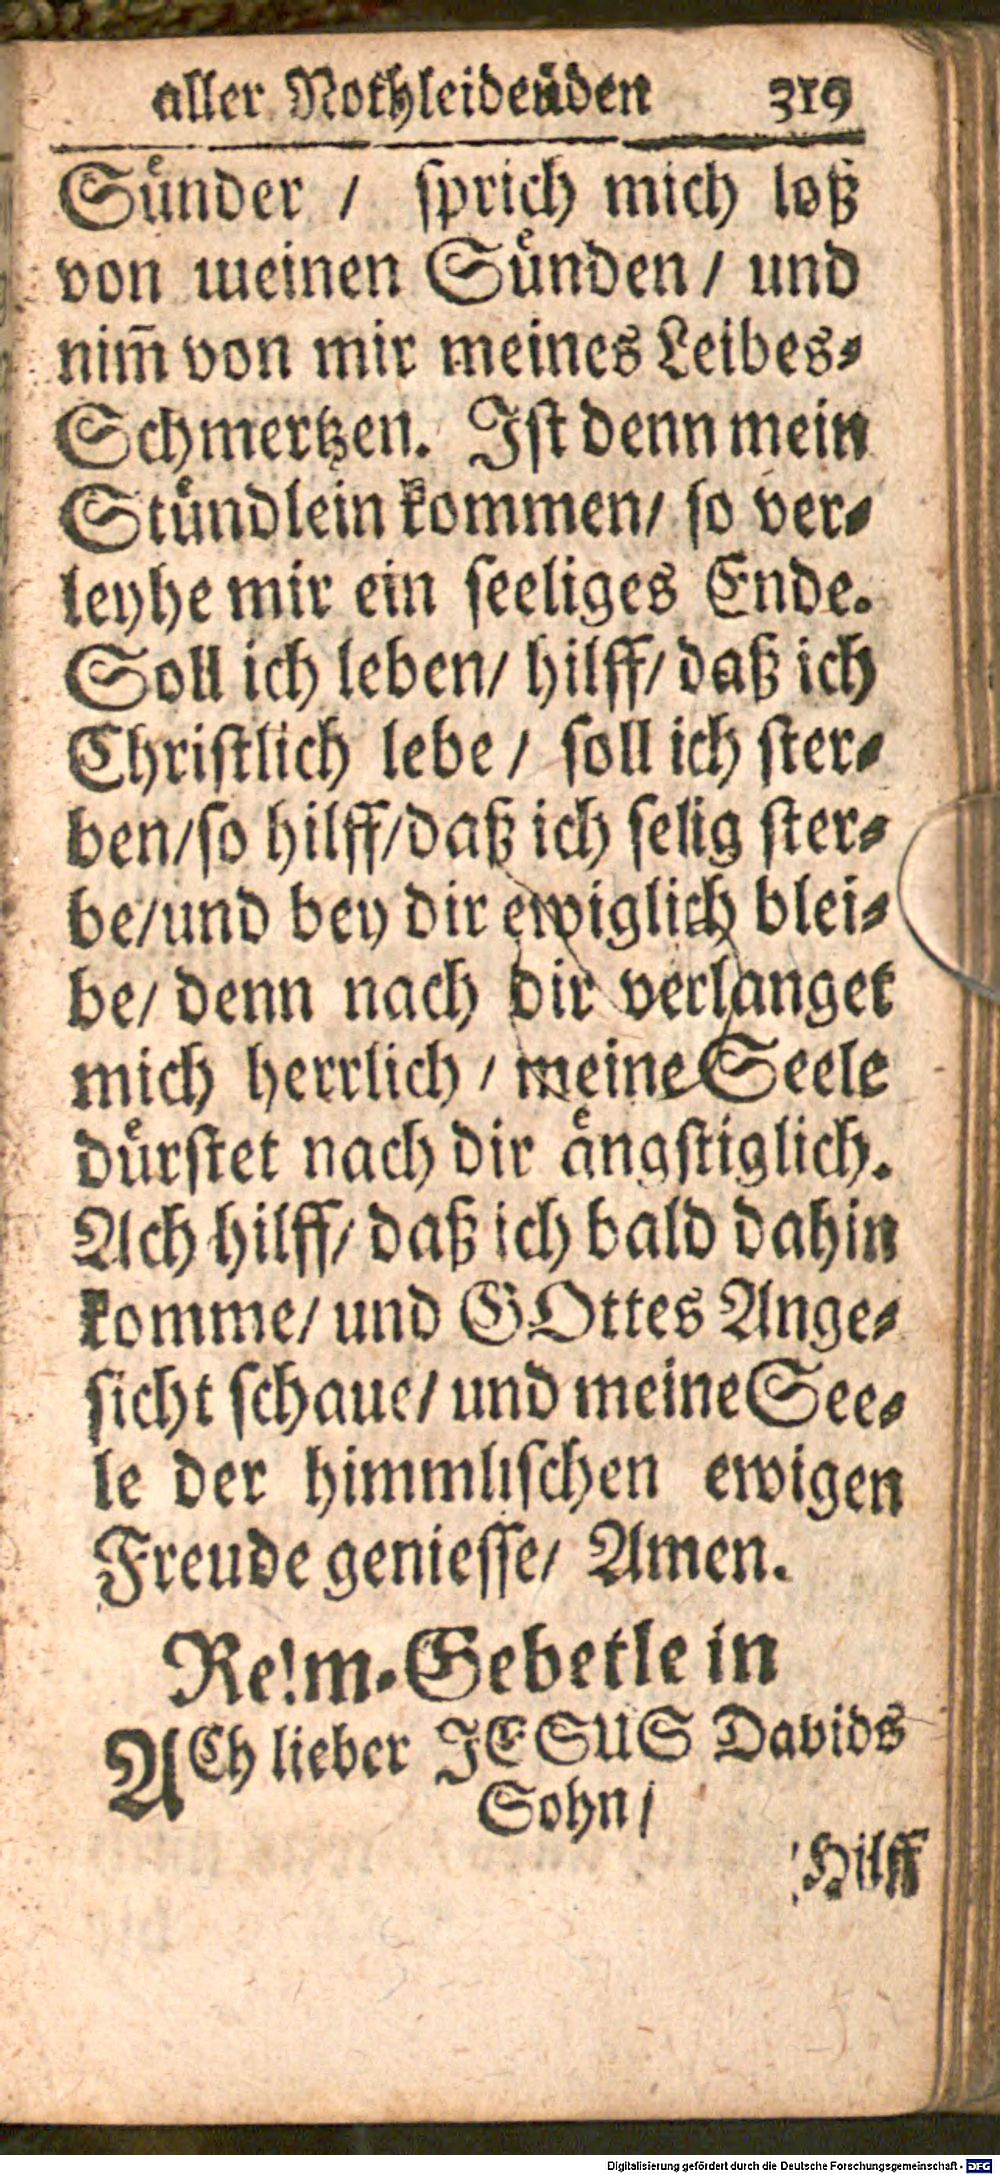 aller Nothleidenden 319
Sünder / sprich mich loß
von meinen Sünden / und
nim̃ von mir meines Leibes-
Schmertzen. Ist denn mein
Stündlein kommen / so ver-
leyhe mir ein seeliges Ende.
Soll ich leben / hilff / daß ich
Christlich lebe / soll ich ster-
ben / so hilff / daß ich selig ster-
be / und bey dir ewiglich blei-
be / denn nach dir verlanget
mich herrlich / meine Seele
dürstet nach dir ängstiglich.
Ach hilff / daß ich bald dahin
komme / und GOttes Ange-
sicht schaue / und meine See-
le der himmlischen ewigen
Freude geniesse / Amen.
Re!m-Gebetle in
ACh lieber JESUS Davids
Sohn /
Hilff
Digitalisierung gefördert durch die Deutsche Forschungsgemeinschaft - DFG